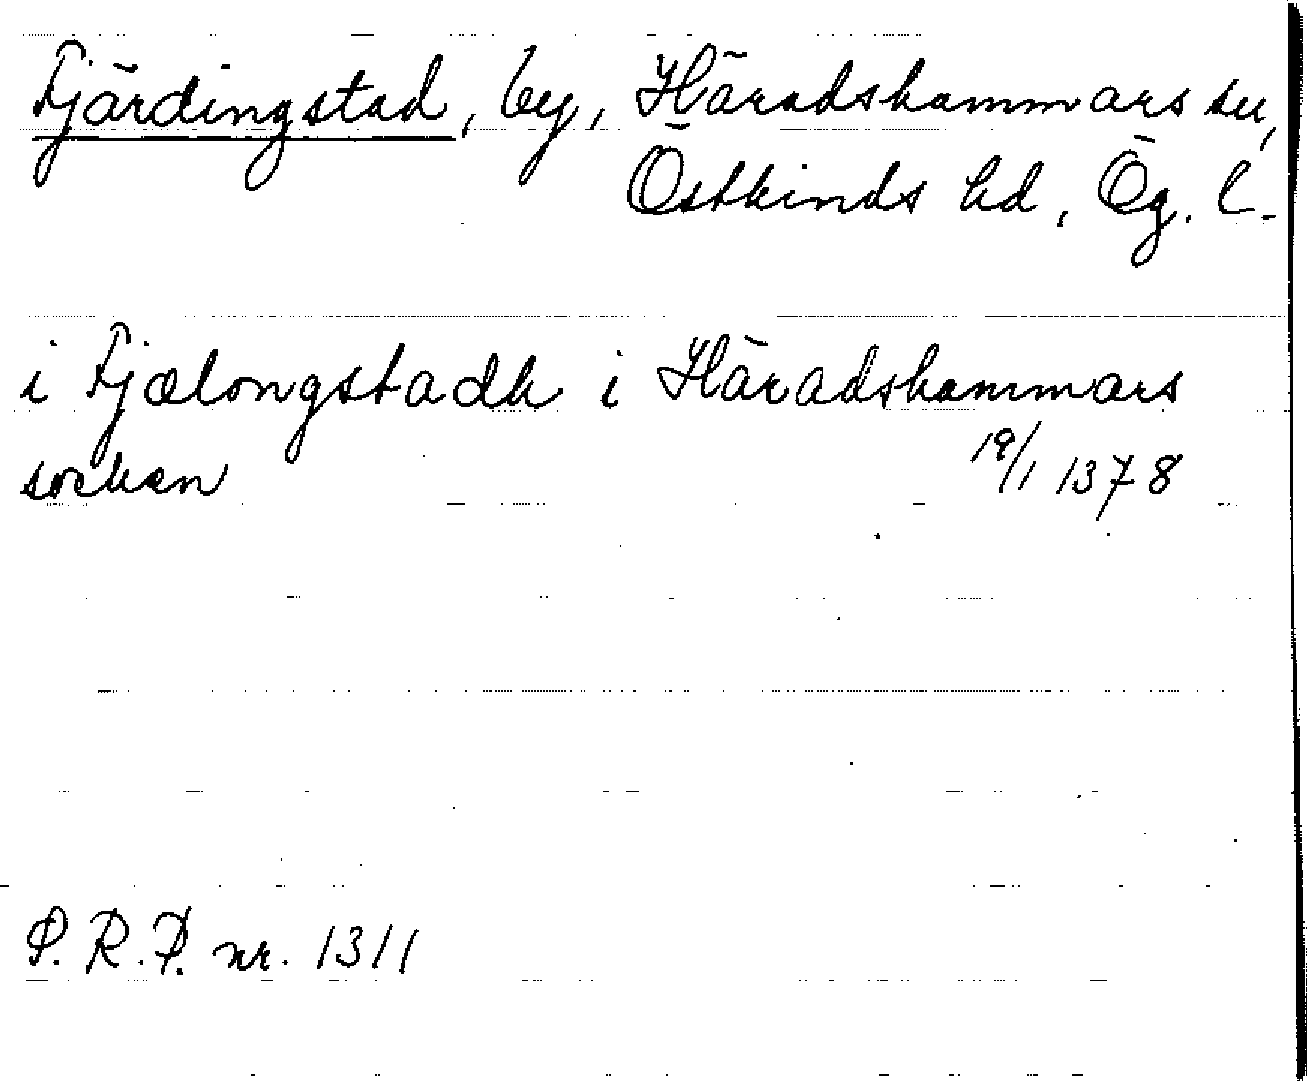 Fjärdingstad, by, Häradshammars sn,
Östkinds hd, Ög. l.
i Fjælongstadh i Häradshammars
socken 19/1 1378
S. R. P. nr. 1311